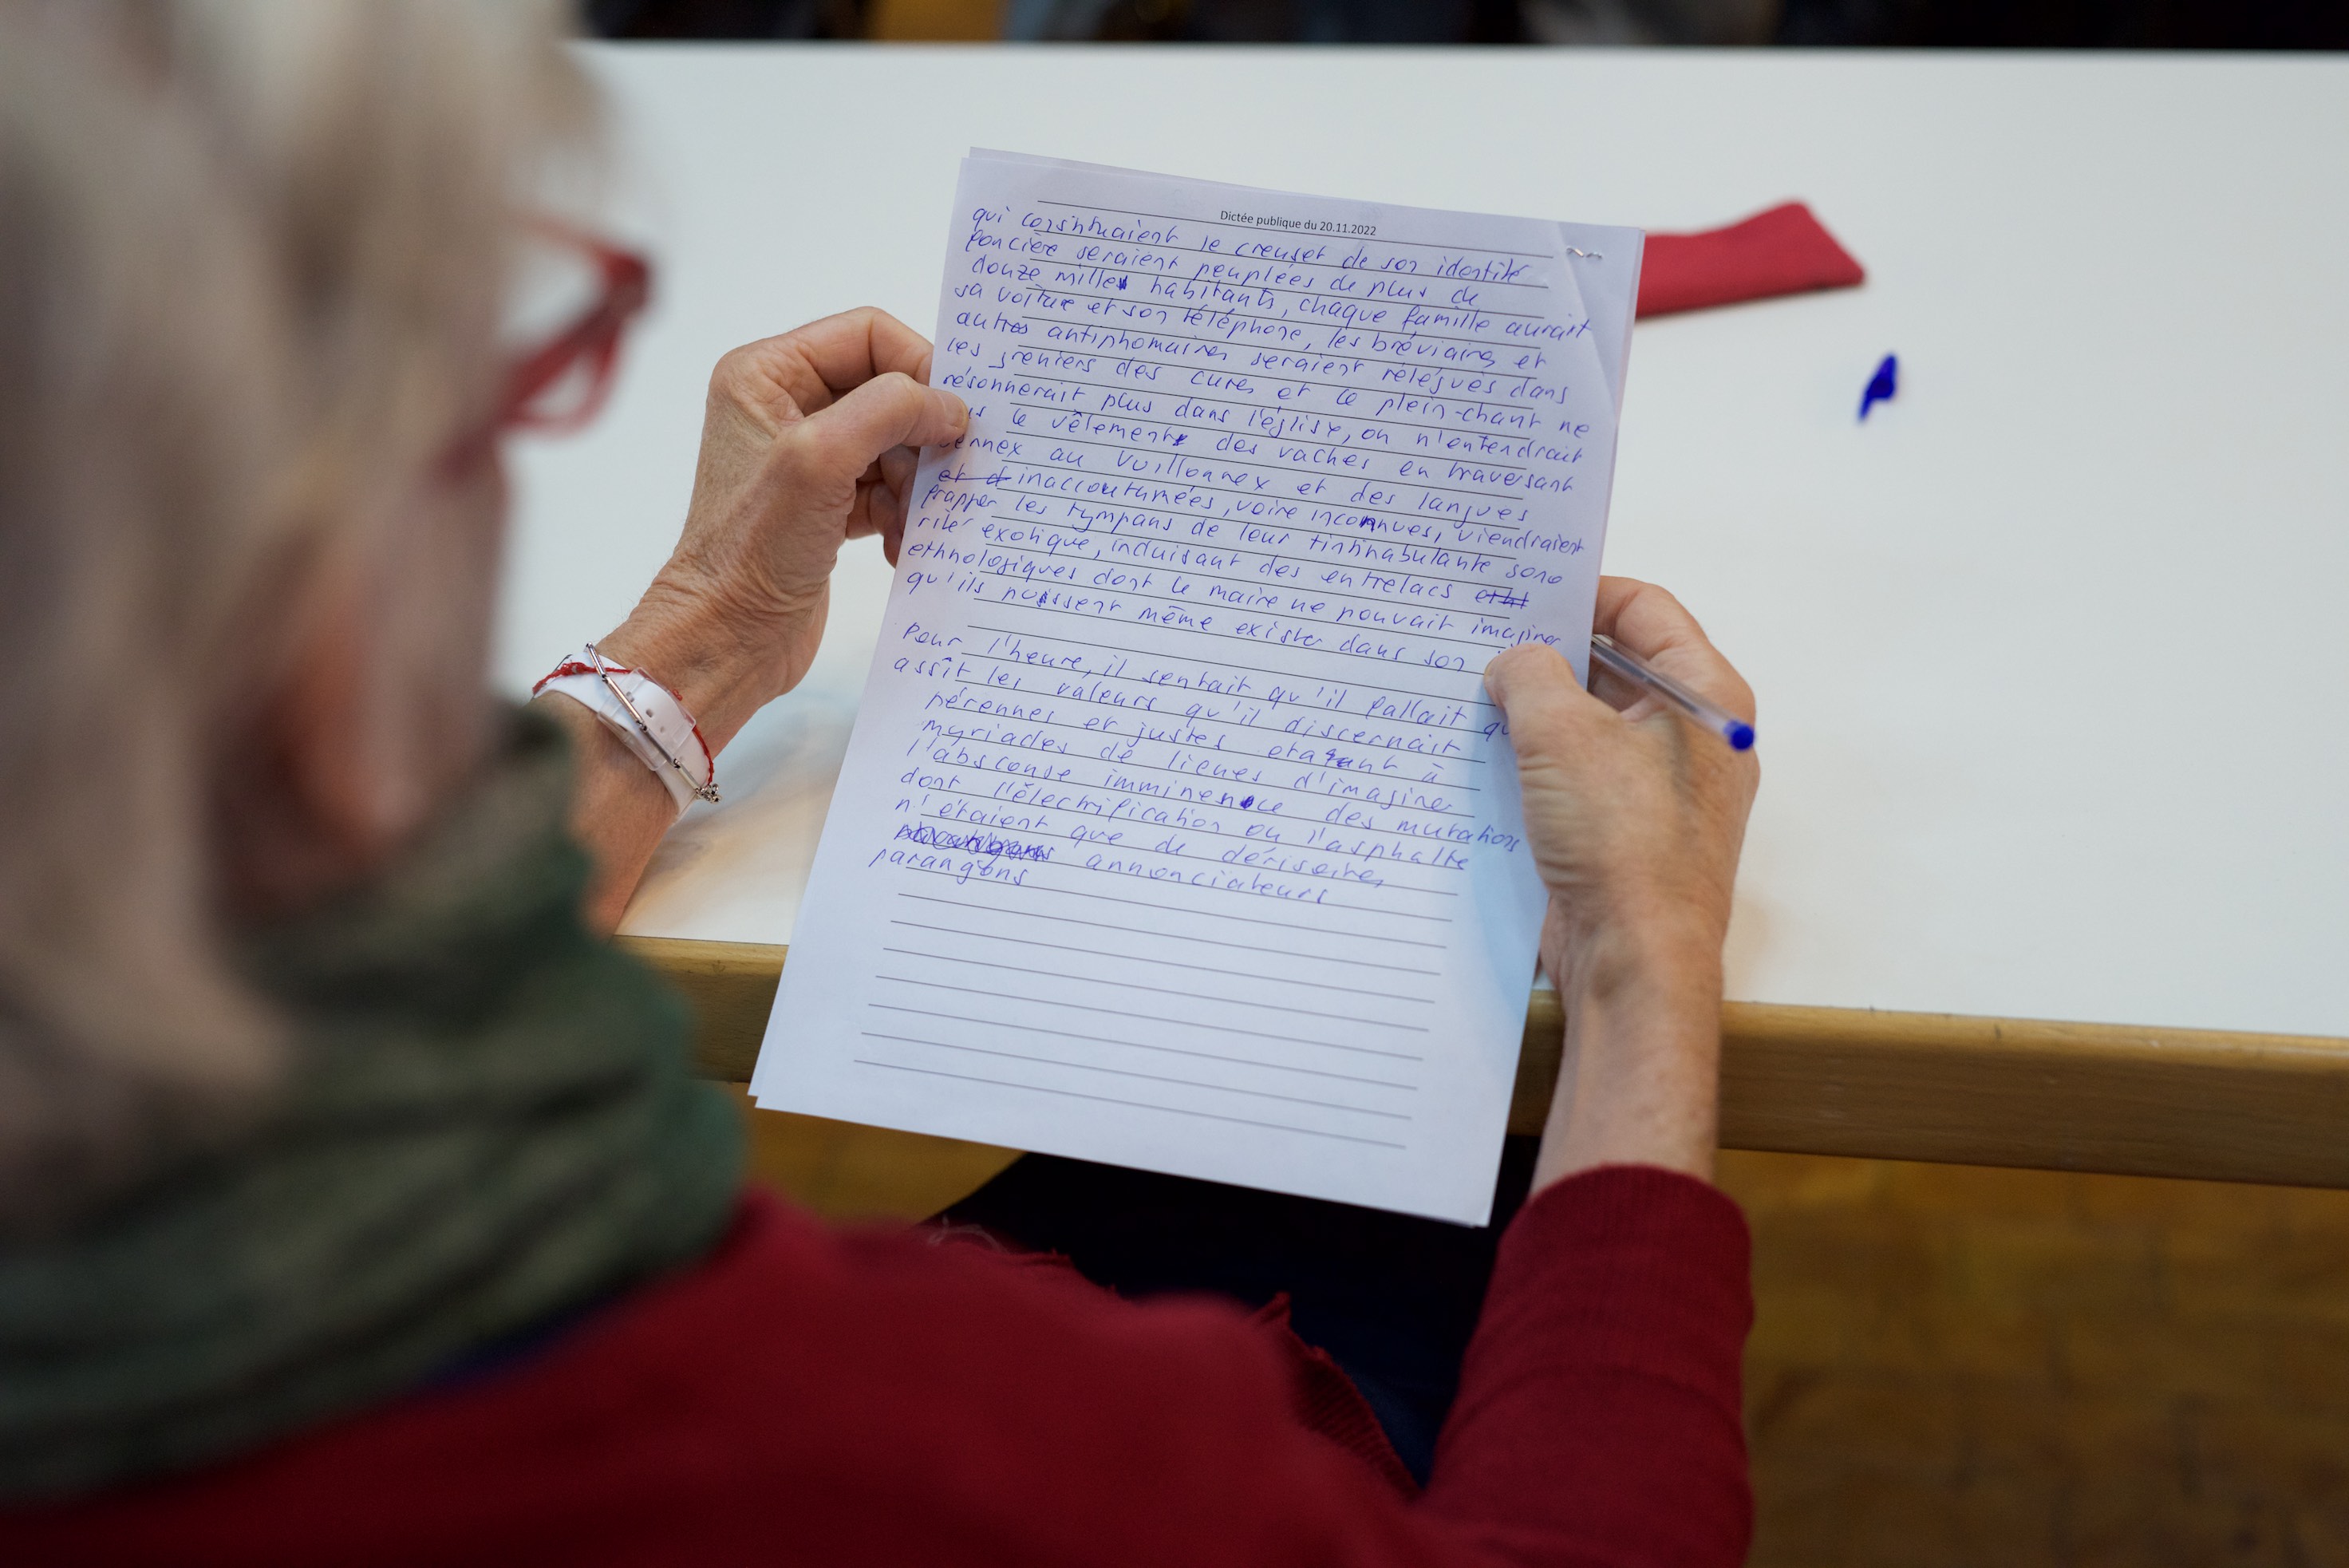 Dictée publique du 20.11.2022
qui constituaient le creuset de son identité
foncière seraient peuplées de plus de
douze mille habitants, chaque famille aurait
sa voiture et son téléphone, les bréviaires et
autres antiphonaires seraient relégués dans
les greniers des cures et le plein-chant ne
résonnerait plus dans l'église, on n'entendrait
le vêlement des vaches en traversant
au Vuillonnex et des langues
inaccoutumées, voire inconnues, viendraient
frapper les tympans de leur tintinnabulante sono
rité exotique, induisant des entrelacs
ethnologiques dont le maire ne pouvait imaginer
qu'ils puissent même exister dans son
Pour l'heure, il sentait qu'il fallait qu
assît les valeurs qu'il discernait
pérennes et justes étant à
myriades de lieues d'imaginer
l'absconse imminence des mutations
dont l'électrification ou l'asphalte
n'étaient que de dérisoires
annonciateurs
parangons